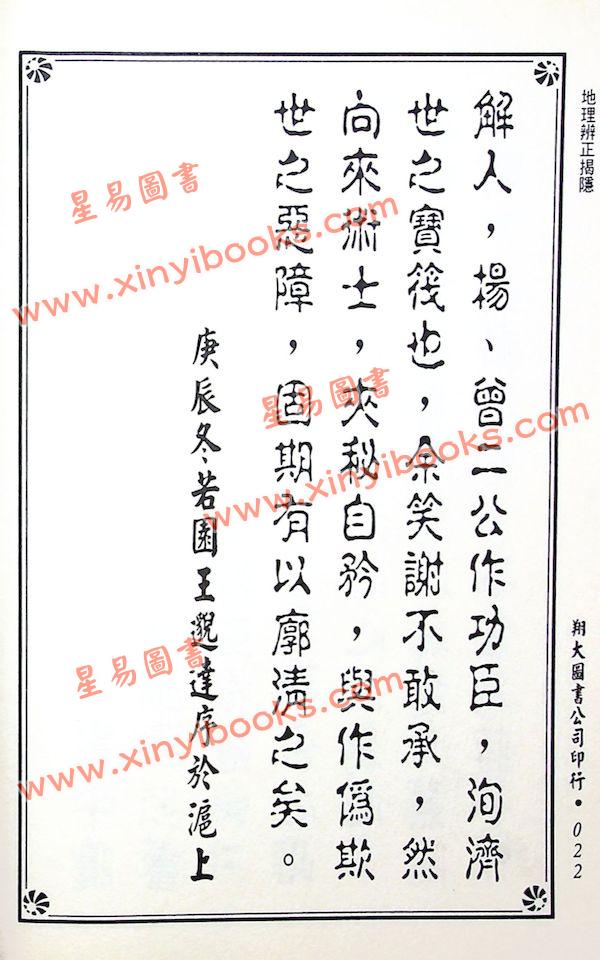 地理辨正揭隱
解人，楊、曾二公作功臣，洵濟
世之寶筏也，余笑謝不敢承，然
向來術士，夾秘自矜，與作偽欺
世之惡障，固期有以廓清之矣。
庚辰冬若園王邈達序於滬上
翔大圖書公司印行•022
星易圖書
www.xinyibooks.com
星易圖書
www.xinyibooks.com
星易圖書
www.xinyibooks.com